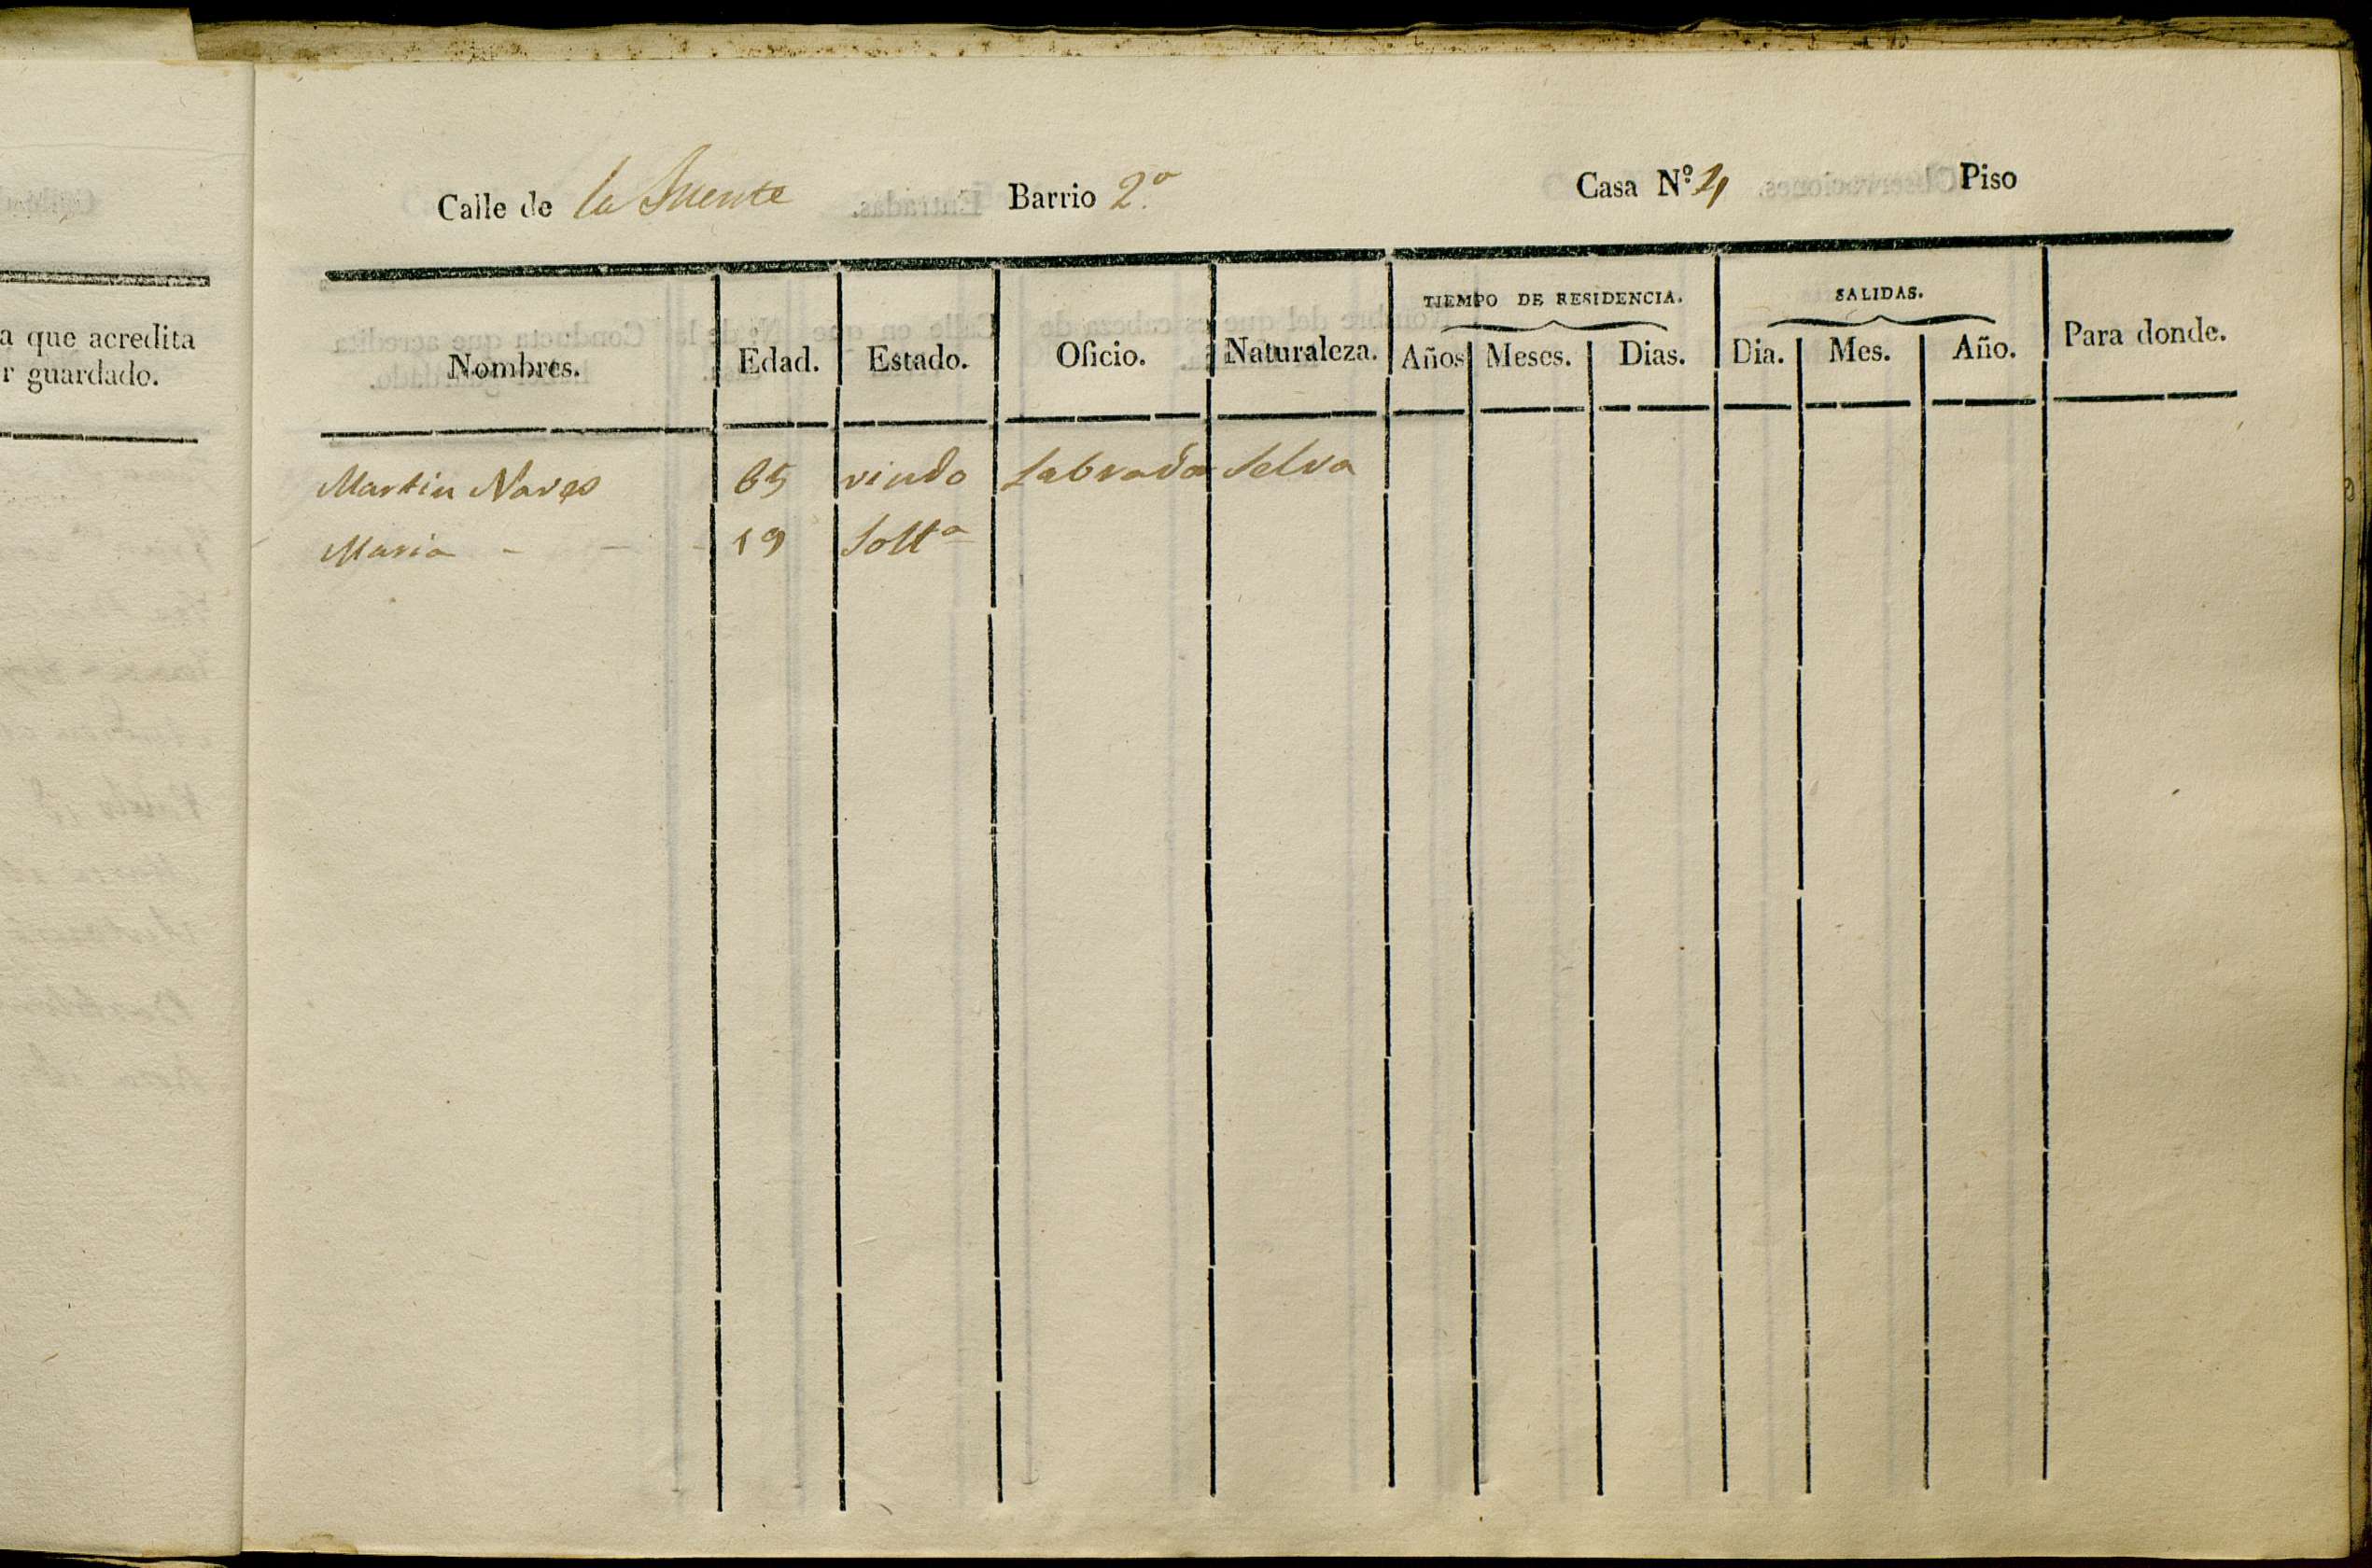 a que acredita
r guardado.
Calle de la Fuente Barrio 2.º Casa Nº 4 Piso
TIEMPO DE RESIDENCIA. SALIDAS.
Nombres. Edad. Estado. Oficio. Naturaleza. Años Meses. Dias. Dia. Mes. Año. Para donde.
Martin Naves 65 viudo Labrador Selva
Maria - - - 19 Soltª